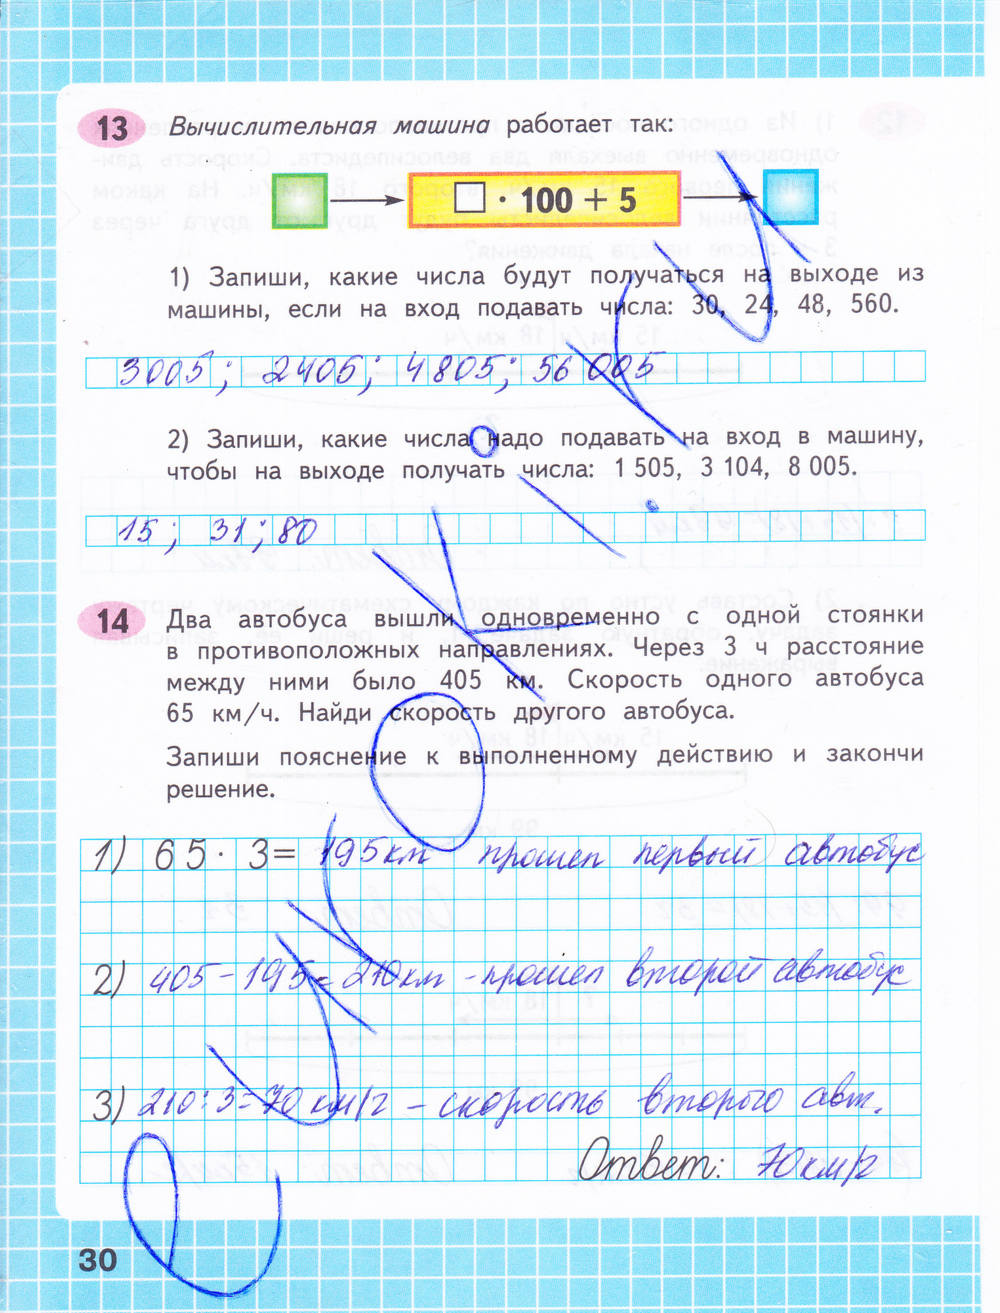 13 Вычислительная машина работает так:
□ · 100 + 5
1) Запиши, какие числа будут получаться на выходе из
машины, если на вход подавать числа: 30, 24, 48, 560.
3005; 2405; 4805; 56005
2) Запиши, какие числа надо подавать на вход в машину,
чтобы на выходе получать числа: 1 505, 3 104, 8 005.
15; 31; 80
14 Два автобуса вышли одновременно с одной стоянки
в противоположных направлениях. Через 3 ч расстояние
между ними было 405 км. Скорость одного автобуса
65 км/ч. Найди скорость другого автобуса.
Запиши пояснение к выполненному действию и закончи
решение.
1) 65 · 3 = 195 км прошел первый автобус
2) 405 - 195 = 210 км - прошел второй автобус
3) 210 : 3 = 70 км/ч - скорость второго авт.
Ответ: 70 км/ч
30